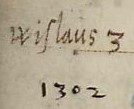 wiſlaus 3
1302